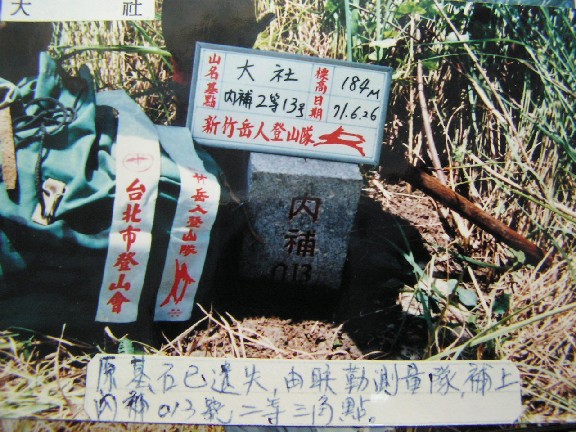 大社
山名 大社 標高 184M
基點 內補2等13号 日期 71.6.26
新竹岳人登山隊
台北市登山會
竹岳人登山隊
內補
013
原基石已遺失,由联勤測量隊,補上
內補013號二等三角點。